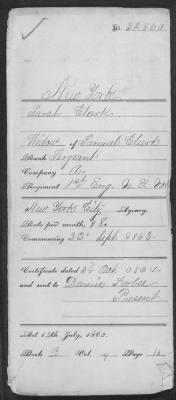 New York
Sarah Clark
Widow of Samuel Clark
Rank Sergeant
Company
Regiment 1st Eng. N. Y. Vols
New York City, Agency.
Rate per month, $ 8.
Commencing 23d Sept 1863
Certificate dated 3d Oct 1864
and sent to Daniel Forbes
Present
Act 14th July, 1862.
Book B Vol. 4 Page